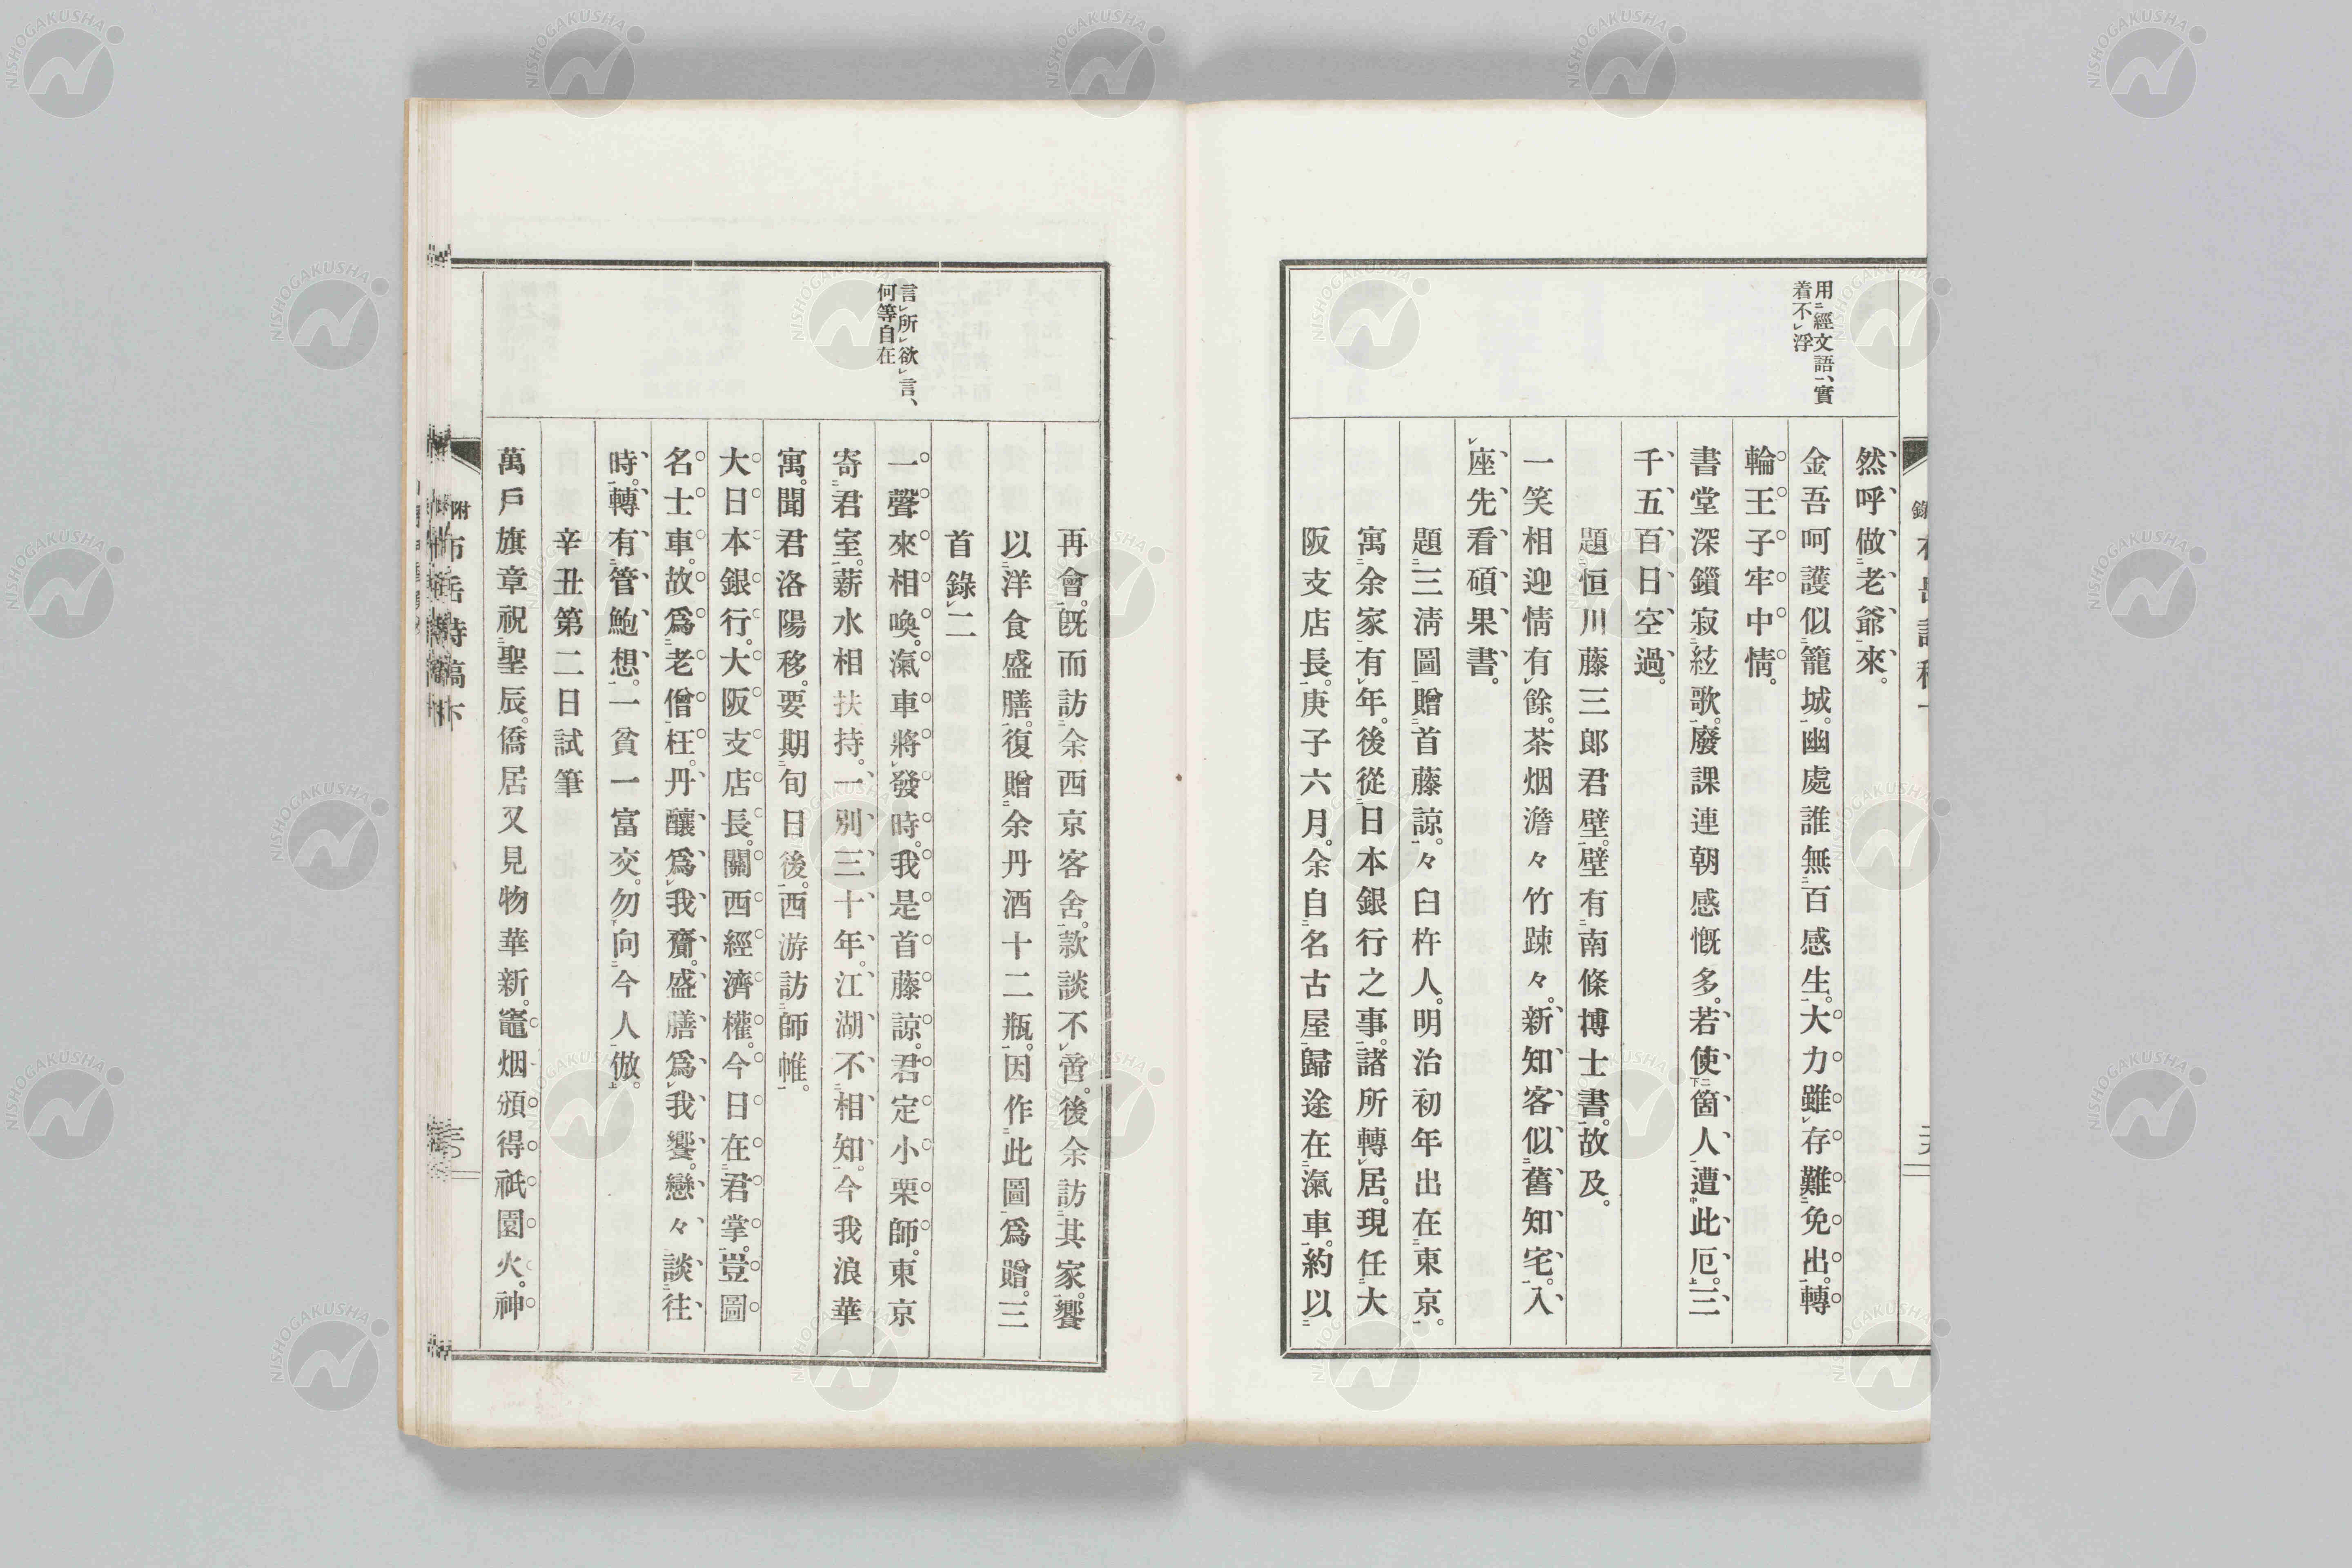 用經文語、實
着不浮
然呼做老爺來。
金吾呵護似籠城。幽處誰無百感生。大力雖存難免出。轉
輪王子牢中情。
書堂深鎖寂絃歌。廢課連朝感慨多。若使箇人遭此厄。三
千五百日空過。
題恒川藤三郎君壁。壁有南條博士書。故及。
一笑相迎情有餘。茶烟澹々竹踈々。新知客似舊知宅。入
座先看碩果書。
題三淸圖贈首藤諒。々臼杵人。明治初年出在東京。
寓余家有年。後從日本銀行之事。諸所轉居。現任大
阪支店長。庚子六月。余自名古屋歸途在滊車。約以
言所欲言、
何等自在
再會。既而訪余西京客舍。款談不啻。後余訪其家。饗
以洋食盛膳。復贈余丹酒十二瓶。因作此圖爲贈。三
首錄二
一聲來相喚。滊車將發時。我是首藤諒。君定小栗師。東京
寄君室。薪水相扶持。一別三十年。江湖不相知。今我浪華
寓。聞君洛陽移。要期旬日後。西游訪師帷。
大日本銀行。大阪支店長。關西經濟權。今日在君掌。豈圖
名士車。故爲老僧枉。丹釀爲我齎。盛膳爲我饗。戀々談往
時。轉有管鮑想。一貧一富交。勿向今人倣。
辛丑第二日試筆
萬戶旗章祝聖辰。僑居又見物華新。竈烟頒得祇園火。神
附
NISHOGAKUSHA